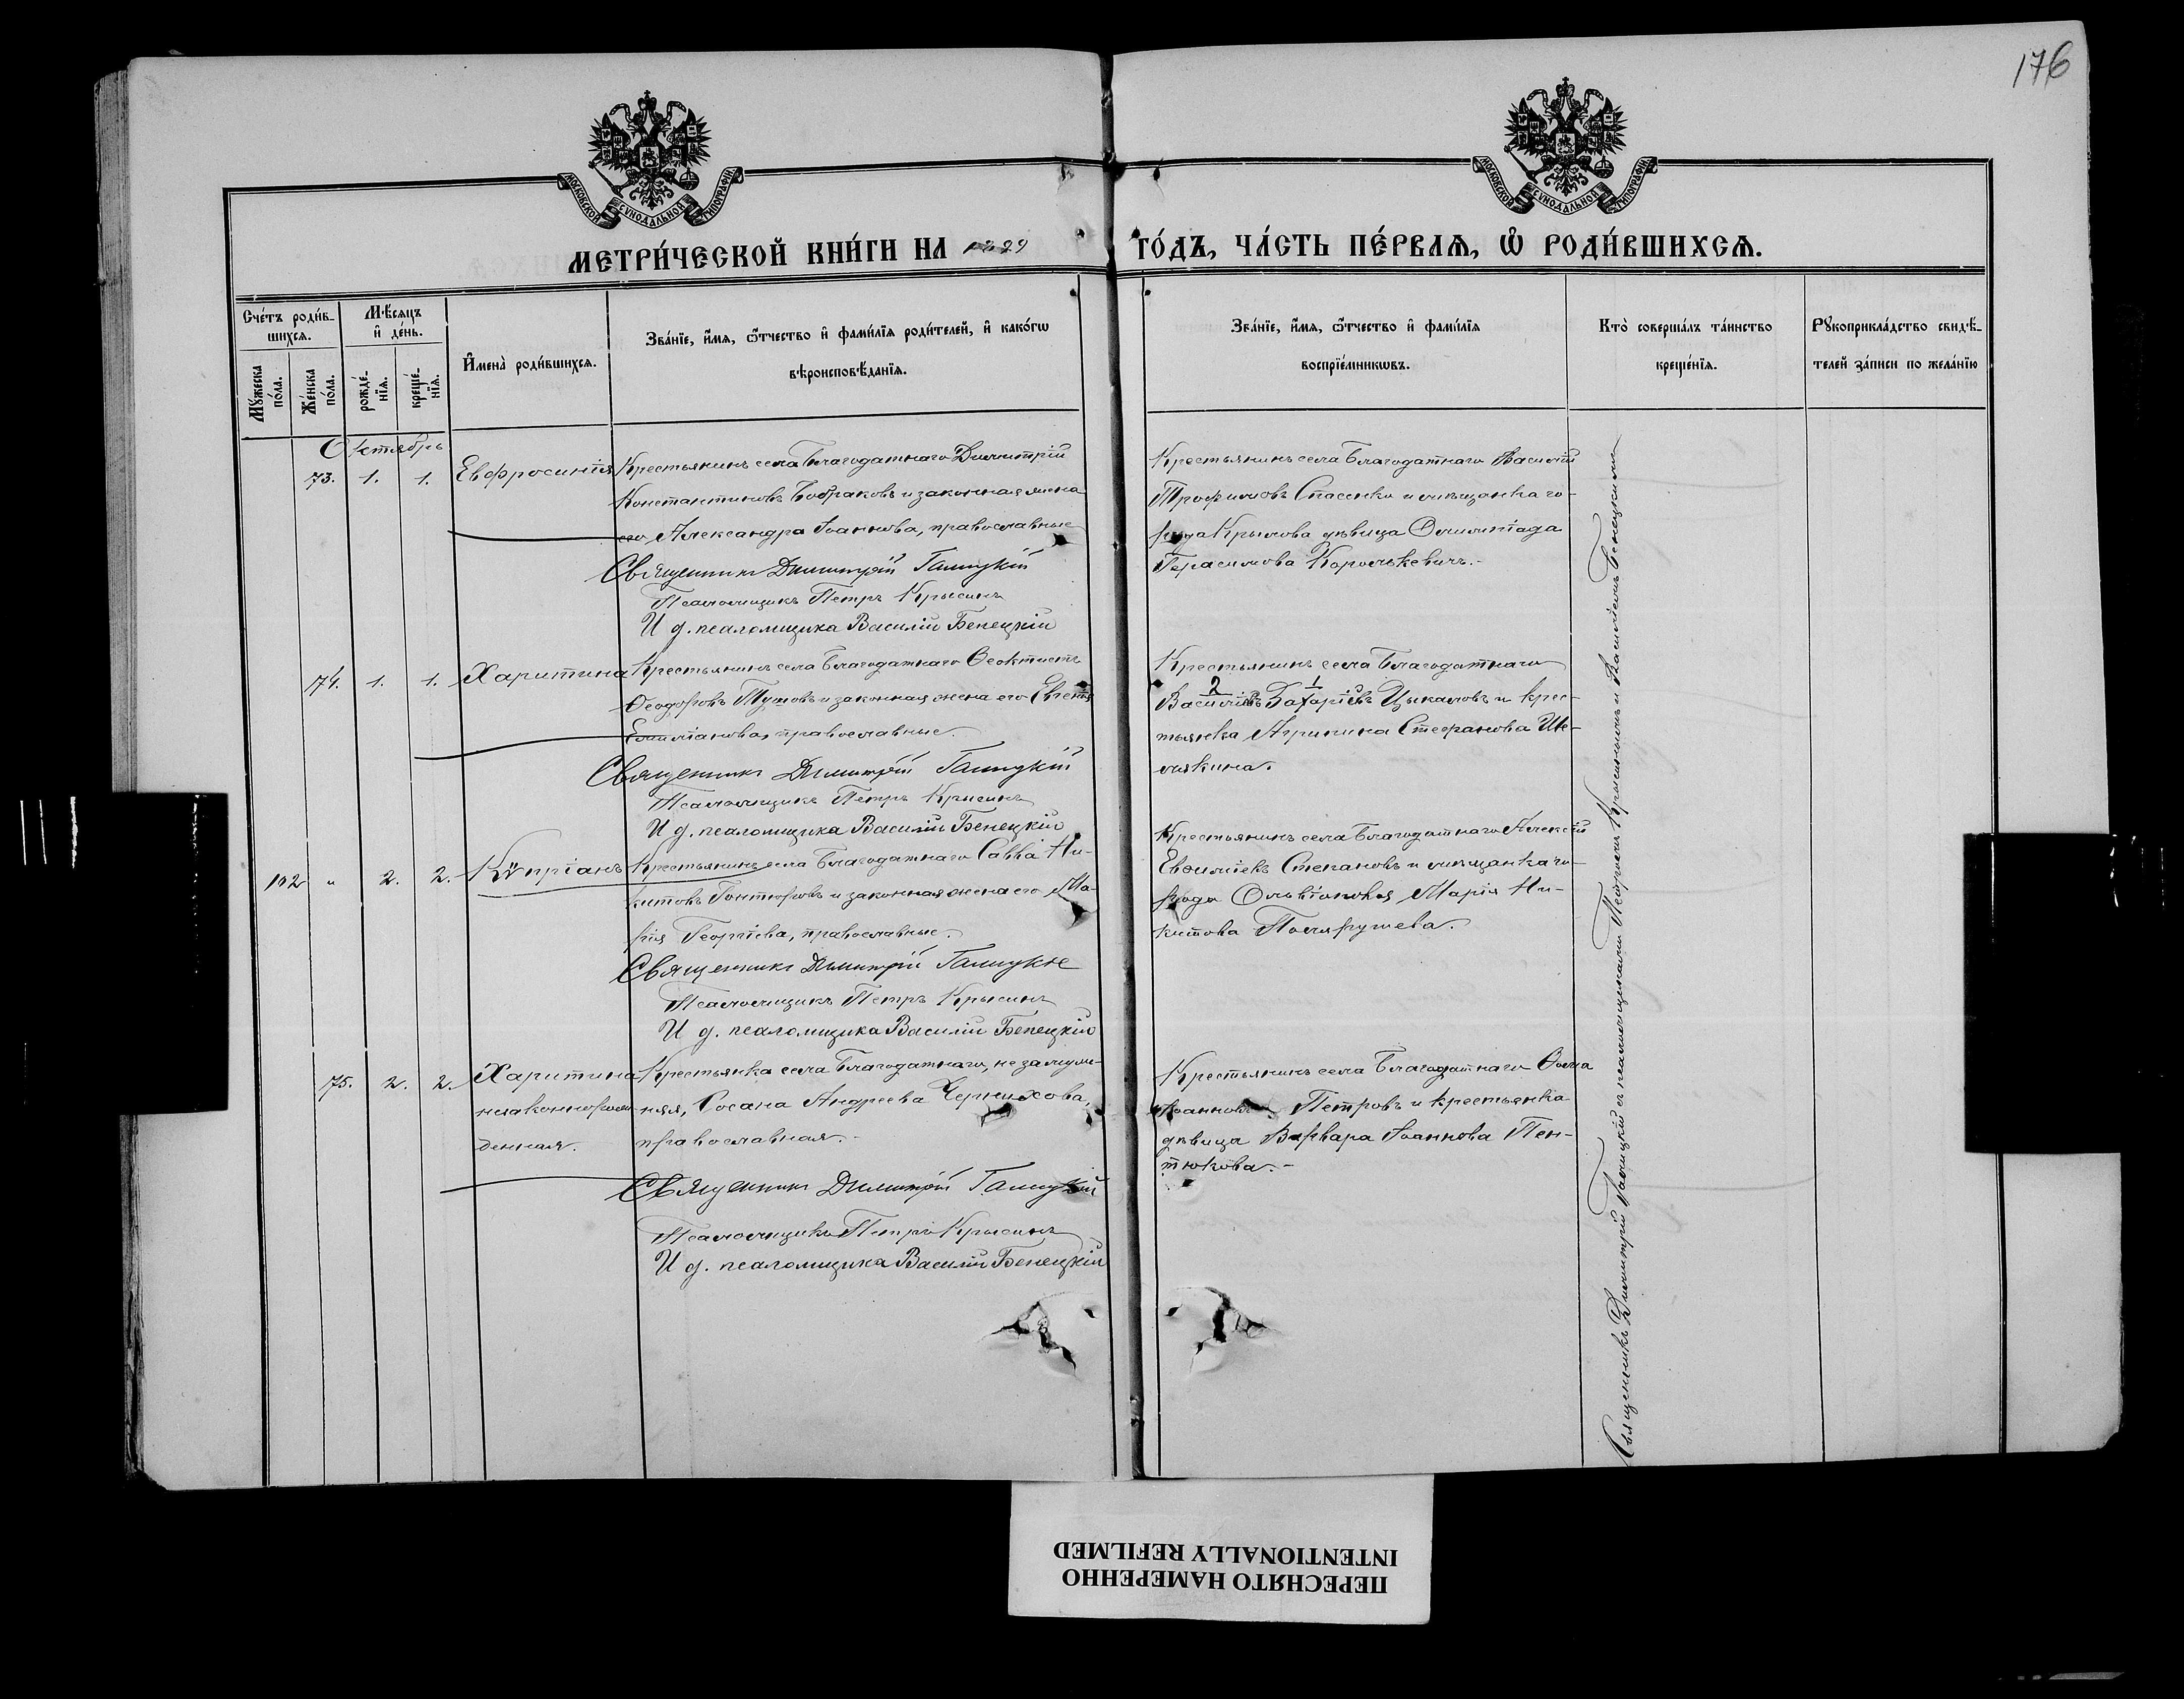 176
МОСКОВСКОЙ СУНОДАЛЬНОЙ ТИПОГРАФІИ
МОСКОВСКОЙ СУНОДАЛЬНОЙ ТИПОГРАФІИ
МЕТРИ́ЧЕСКОЙ КНИ́ГИ НА 1889 ГО́ДЪ, ЧА́СТЬ ПЕ́РВАѦ, Ѡ҆ РОДИ́ВШИХСѦ.
Сче́тъ роди́в-
шихсѧ.
Мꙋ́жеска
по́ла.
Же́нска
по́ла.
Мѣ́сѧцъ
и҆ де́нь.
рожде́-
нїѧ.
креще́-
нїѧ.
И҆мена̀ роди́вшихсѧ.
Зва́нїе, и҆́мѧ, ѻ҆́тчество и҆ фами́лїѧ роди́телей, и҆ како́гѡ
вѣроисповѣ́данїѧ.
Зва́нїе, и҆́мѧ, ѻ҆́тчество и҆ фами́лїѧ
воспрїе́мникѡвъ.
Кто̀ соверша́лъ та́инство
креще́нїѧ.
Рꙋкоприкла́дство свидѣ́-
телей за́писи по жела́нїю
Октябрь
73. 1. 1. Евфросинія
Крестьянинъ села Благодатнаго Димитрій
Константиновъ Бобраковъ и законная жена
его Александра Іоаннова, православные
Священникъ Димитрій Галицкій
Псаломщикъ Петръ Крысинъ
И д. псаломщика Василій Бенецкій
Крестьянинъ села Благодатнаго Василій
Трофимовъ Спасенко и мѣщанка го-
рода Крылова дѣвица Олимпіада
Герасимова Королькевичъ.
74. 1. 1. Харитина
Крестьянинъ села Благодатнаго Ѳеоктистъ
Ѳеодоровъ Тутовъ и законная жена его Евгенія
Емиліанова, православные.
Священникъ Димитрій Галицкій
Псаломщикъ Петръ Крысинъ
И д. псаломщика Василій Бенецкій
Крестьянинъ села Благодатнаго
2 1
Василій Захаріевъ Цыкаловъ и крес-
тьянка Агрипина Стефанова Ше-
мякина.
102 " 2. 2. Кѵпріанъ
Крестьянинъ села Благодатнаго Савва Ни-
китовъ Гонтюровъ и законная жена его Ма-
рія Георгіева, православные.
Священникъ Димитрій Галицкій
Псаломщикъ Петръ Крысинъ
И д. псаломщика Василій Бенецкій
Крестьянинъ села Благодатнаго Алексій
Евѳиміевъ Степановъ и мѣщанка го-
рода Ольвіополя Марія Ни-
китова Полярушева.
75. 2. 2. Харитина
незаконнорож-
денная.
Крестьянка села Благодатнаго, незамуж-
няя, Сосана Андреева Чернихова,
православная.
Священникъ Димитрій Галицкій
Псаломщикъ Петръ Крысинъ
И д. псаломщика Василій Бенецкій
Крестьянинъ села Благодатнаго Ѳома
Іоанновъ Петровъ и крестьянка
дѣвица Варвара Іоаннова Пен-
тюхова.
Священникъ Димитрій Галицкій съ псаломщиками Петромъ Крысинымъ и Василіемъ Бенецкимъ
ПЕРЕСНЯТО НАМЕРЕННО
INTENTIONALLY REFILMED